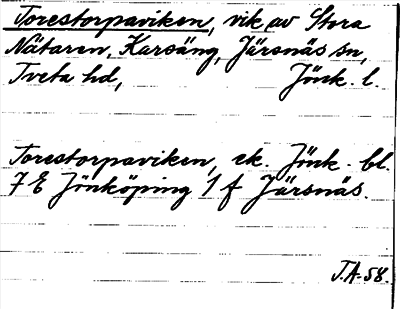 Torestorpaviken, vik av Stora
Nätaren, Karsäng, Järsnäs sn,
Tveta hd, Jönk. l.
Torestorpaviken, ek. Jönk. bl.
7 E Jönköping 1 f Järsnäs.
J.A-58.